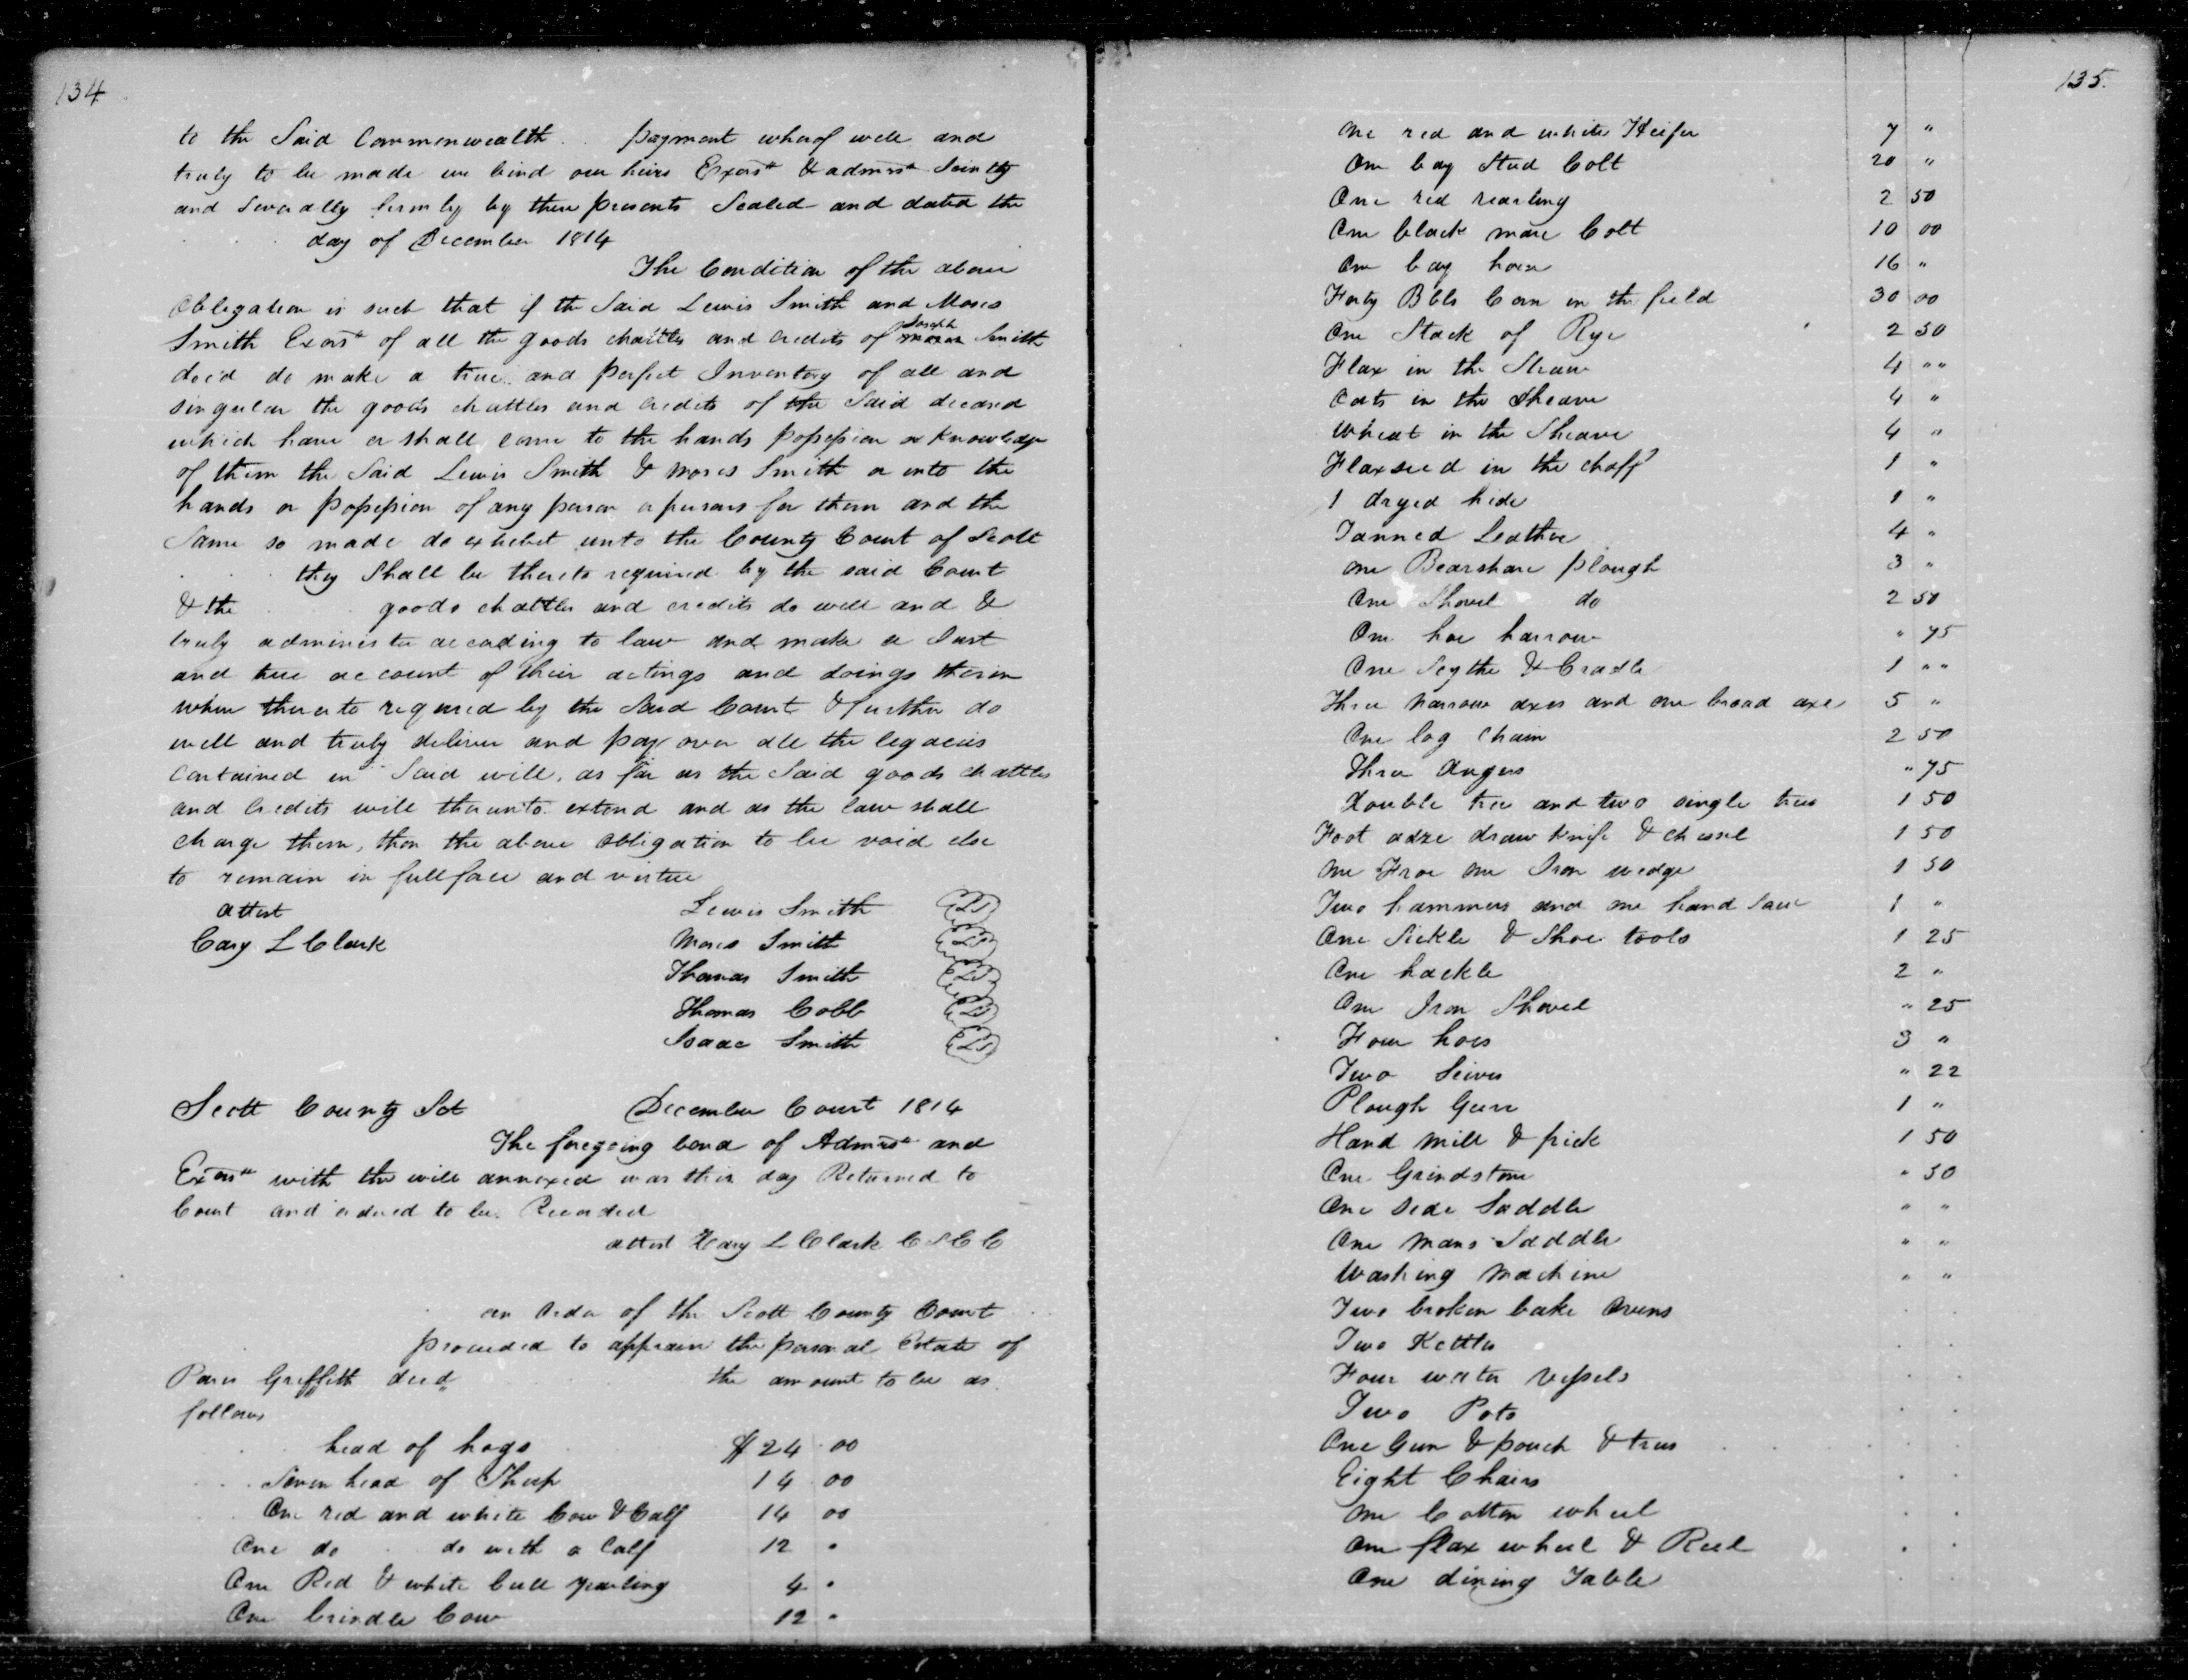 134
to the Said Commonwealth . . payment wherof well and
truly to be made we bind our heirs Exors & admrs Jointly
and Severally firmly by these presents Sealed and dated the
day of December 1814
The Condition of the above
Obligation is such that if the Said Lewis Smith and Moses
Smith Exors of all the goods chattles and credits of Joseph Smith
dec'd do make a true and perfect Inventory of all and
singular the goods chattles and credits of the Said deceased
which have or shall come to the hands possession or knowledge
of them the Said Lewis Smith & Moses Smith or into the
hands or possession of any person or persons for them and the
Same so made do exhibit unto the County Court of Scott
they Shall be thereto required by the said Court
& the goods chattles and credits do well and &
truly administer according to law and make a Just
and true account of their actings and doings therin
when thereto required by the Said Court & further do
well and truly deliver and pay over all the legacies
contained in Said will, as far as the Said goods chattles
and credits will thereunto extend and as the law shall
charge them, then the above obligation to be void else
to remain in full force and virtue
attest Lewis Smith LS
Cary L Clark Moses Smith LS
Thomas Smith LS
Thomas Cobb LS
Isaac Smith LS
Scott County Sct December Court 1814
The foregoing bond of Admrs and
Exors with the will annexed was this day Returned to
Court and ordered to be Recorded
attest Cary L Clark C S C C
an order of the Scott County Court
proceeded to appraise the personal Estate of
Griffith decd the amount to be as
follows
head of hogs $24 00
Seven head of Sheep 14 00
One red and white Cow & Calf 14 00
One do do with a Calf 12 "
One Red & white bull yearling 4 "
One brindle Cow 12 "
135.
One red and white Heifer 7 "
One bay Stud Colt 20 "
One red yearling 2 50
One black mare Colt 10 00
One bay horse 16 "
Forty Bbls Corn in the field 30 00
One Stack of Rye 2 50
Flax in the 4 " "
Oats in the Sheave 4 "
Wheat in the Sheave 4 "
Flaxseed in the chaff 1 "
1 dryed hide 1 "
Tanned Leather 4 "
One Bearshare plough 3 "
One Shovel do 2 50
One hoe harrow " 75
One Scythe & Cradle 1 " "
Three narrow axes and one broad axe 5 "
One log Chain 2 50
Three Augers " 75
Double tree and two single trees 1 50
Foot adze draw knife & chissel 1 50
One Froe One Iron wedge 1 50
Two hammers and one hand Saw 1 "
One Sickle & Shoe tools 1 25
One hackle 2 "
One Iron Shovel " 25
Four hoes 3 "
Two Seives " 22
Plough Gears 1 "
Hand Mill & pick 1 50
One Grindstone " 50
One Side Saddle " "
One Mans Saddle " "
Washing Machine " "
Two broken bake Ovens
Two Kettles
Four water Vessels
Two Pots
One Gun & pouch &
Eight Chairs
One Cotton wheel
One flax wheel & Reel
One dining Table